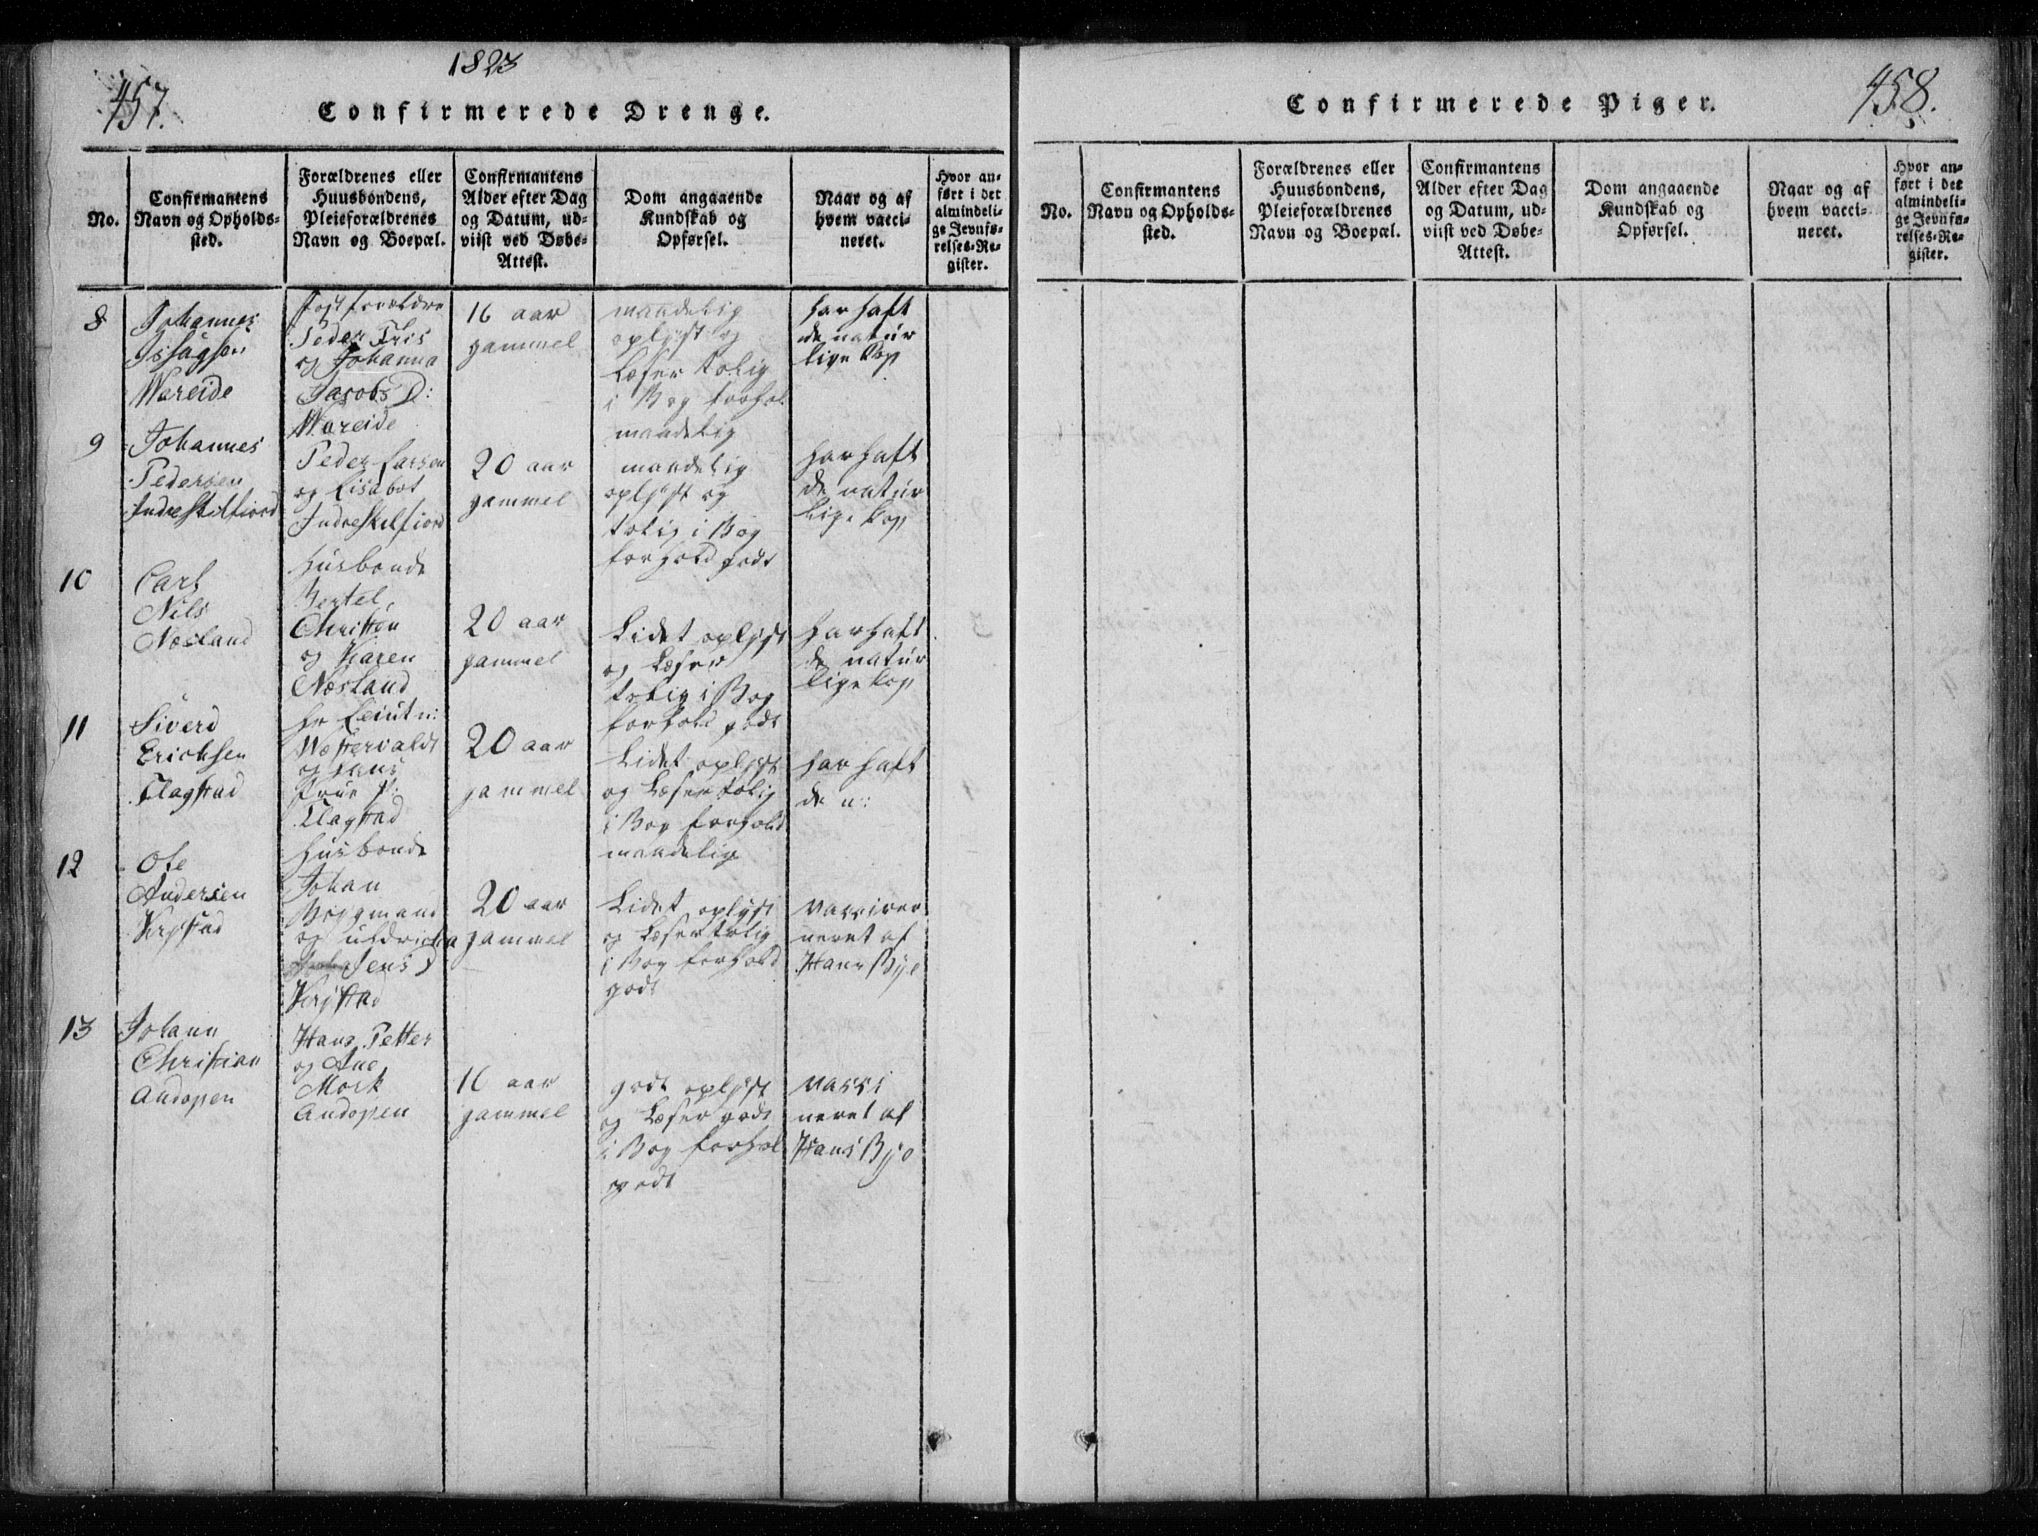 457.
1823
Confirmerede Drenge.
No.
Confirmantens
Navn og Opholds-
sted.
Forældrenes eller
Huusbondens,
Pleieforældrenes
Navn og Boepæl.
Confirmantens
Alder efter Dag
og Datum, ud-
viist ved Døbe-
Attest.
Dom angaaende
Kundskab og
Opførsel.
Naar og af
hvem vacci-
neret.
Hvor an-
ført i det
almindeli-
ge Jevnfø-
relses-Re-
gister.
8
Johannes
Wareide
Peder
og Johanna
Jacobs D:
Wareide
16 aar
gammel
maadelig
oplyst og
Læser tolig
i Bog forhol
maadelig
har haft
de natur
lige Kop
9
Johannes
Pedersen
Indreskelfiord
Peder Larsen
og Lisabet
Indreskelfiord
20 aar
gammel
maadelig
oplyst og
tolig i Bog
forhold godt
har haft
de natur
lige Kop
10
Carl
Nils
Næsland
Husbonde
Bertel
Christen
og Karen
Næsland
20 aar
gammel
Lidet oplyst
og Læser
tolig i Bog
forhold godt
har haft
de natur
lige Kop
11
Siverd
Erichsen
Flagstad
Hr Leiutn:
og hans
Frue
Flagstad
20 aar
gammel
Lidet oplyst
og Læser tolig
i Bog forhold
maadelig
har haft
de n:
12
Ole
Andersen
Husbonde
Johan
og Uldricha
Jens D
20 aar
gammel
Lidet oplyst
og Læser tolig
i Bog forhold
godt
neret af
Hans Bye
13
Johann
Christian
Andopen
Hans Petter
og Ane
Mork
Andopen
16 aar
gammel
godt oplyst
og Læser godt
i Bog forhol
godt
vacci
neret af
Hans Bye
458.
Confirmerede Piger.
No.
Confirmantens
Navn og Opholds-
sted.
Forældrenes eller
Huusbondens,
Pleieforældrenes
Navn og Boepæl.
Confirmantens
Alder efter Dag
og Datum, ud-
viist ved Døbe-
Attest.
Dom angaaende
Kundskab og
Opførsel.
Naar og af
hvem vacci-
neret.
Hvor an-
ført i det
almindeli-
ge Jevnfø-
relses-Re-
gister.